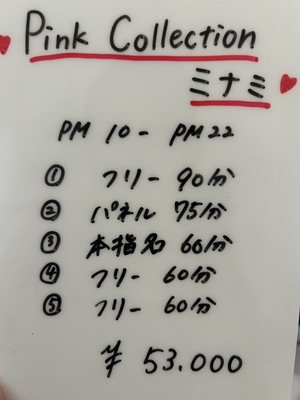 Pink Collection
ミナミ
PM 10- PM 22
① フリー 90分
② パネル 75分
③ 本指名 60分
④ フリー 60分
⑤ フリー 60分
¥ 53.000